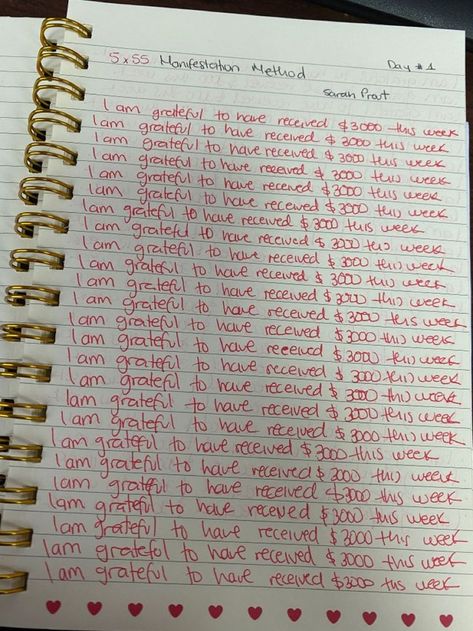 5x55 Manifestation Method Day #1
Sarah Prout
I am grateful to have received $3000 this week
I am grateful to have received $3000 this week
I am grateful to have received $3000 this week
I am grateful to have received $3000 this week
I am grateful to have received $3000 this week
I am grateful to have received $3000 this week
I am grateful to have received $3000 this week
I am grateful to have received $3000 this week
I am grateful to have received $3000 this week
I am grateful to have received $3000 this week
I am grateful to have received $3000 this week
I am grateful to have received $3000 this week
I am grateful to have received $3000 this week
I am grateful to have received $3000 this week
I am grateful to have received $3000 this week
I am grateful to have received $3000 this week
I am grateful to have received $3000 this week
I am grateful to have received $3000 this week
I am grateful to have received $3000 this week
I am grateful to have received $3000 this week
I am grateful to have received $3000 this week
I am grateful to have received $3000 this week
I am grateful to have received $3000 this week
I am grateful to have received $3000 this week
I am grateful to have received $3000 this week